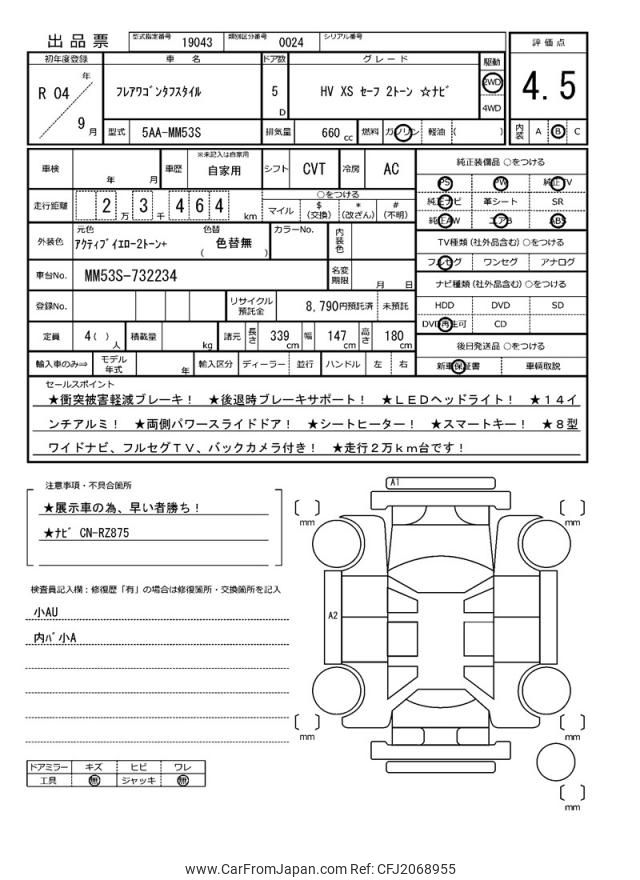 出品票 型式指定番号 19043 類別区分番号 0024 シリアル番号
評価点
4.5
内装 A B C
初年度登録 車名 ドア数 グレード 駆動
R 04 年 9 月
フレアワゴンタフスタイル 5 D HV XS セーフ 2トーン ☆ナビ 2WD 4WD
型式 5AA-MM53S 排気量 660 cc 燃料 ガソリン 軽油 ( )
車検 年 月 車歴 ※未記入は自家用 自家用 シフト CVT 冷房 AC
走行距離 2 万 3 千 4 6 4 km
○をつける
マイル $ (交換) * (改ざん) # (不明)
外装色 元色 アクティブイエロー2トーン+ 色替 ( 色替無 ) カラーNo. 内装色
車台No. MM53S-732234 名変期限 月 日
登録No. リサイクル預託金 8,790円預託済 未預託
定員 4( ) 人 積載量 kg 諸元 長さ 339 cm 幅 147 cm 高さ 180 cm
輸入車のみ⇒ モデル年式 年 輸入区分 ディーラー 並行 ハンドル 左 右
純正装備品 ○をつける
PS PW 純正TV
純正ナビ 革シート SR
純正AW エアB ABS
TV種類 (社外品含む) ○をつける
フルセグ ワンセグ アナログ
ナビ種類 (社外品含む) ○をつける
HDD DVD SD
DVD再生可 CD
後日発送品 ○をつける
新車保証書 車輌取説
セールスポイント
★衝突被害軽減ブレーキ! ★後退時ブレーキサポート! ★LEDヘッドライト! ★14イ
ンチアルミ! ★両側パワースライドドア! ★シートヒーター! ★スマートキー! ★8型
ワイドナビ、フルセグTV、バックカメラ付き! ★走行2万km台です!
注意事項・不具合箇所
★展示車の為、早い者勝ち!
★ナビ CN-RZ875
検査員記入欄:修復歴「有」の場合は修復箇所・交換箇所を記入
小AU
内バ小A
ドアミラー キズ ヒビ ワレ
工具 無 ジャッキ 無
A1
A2
mm
mm
mm
mm
mm
www.CarFromJapan.com Ref: CFJ2068955